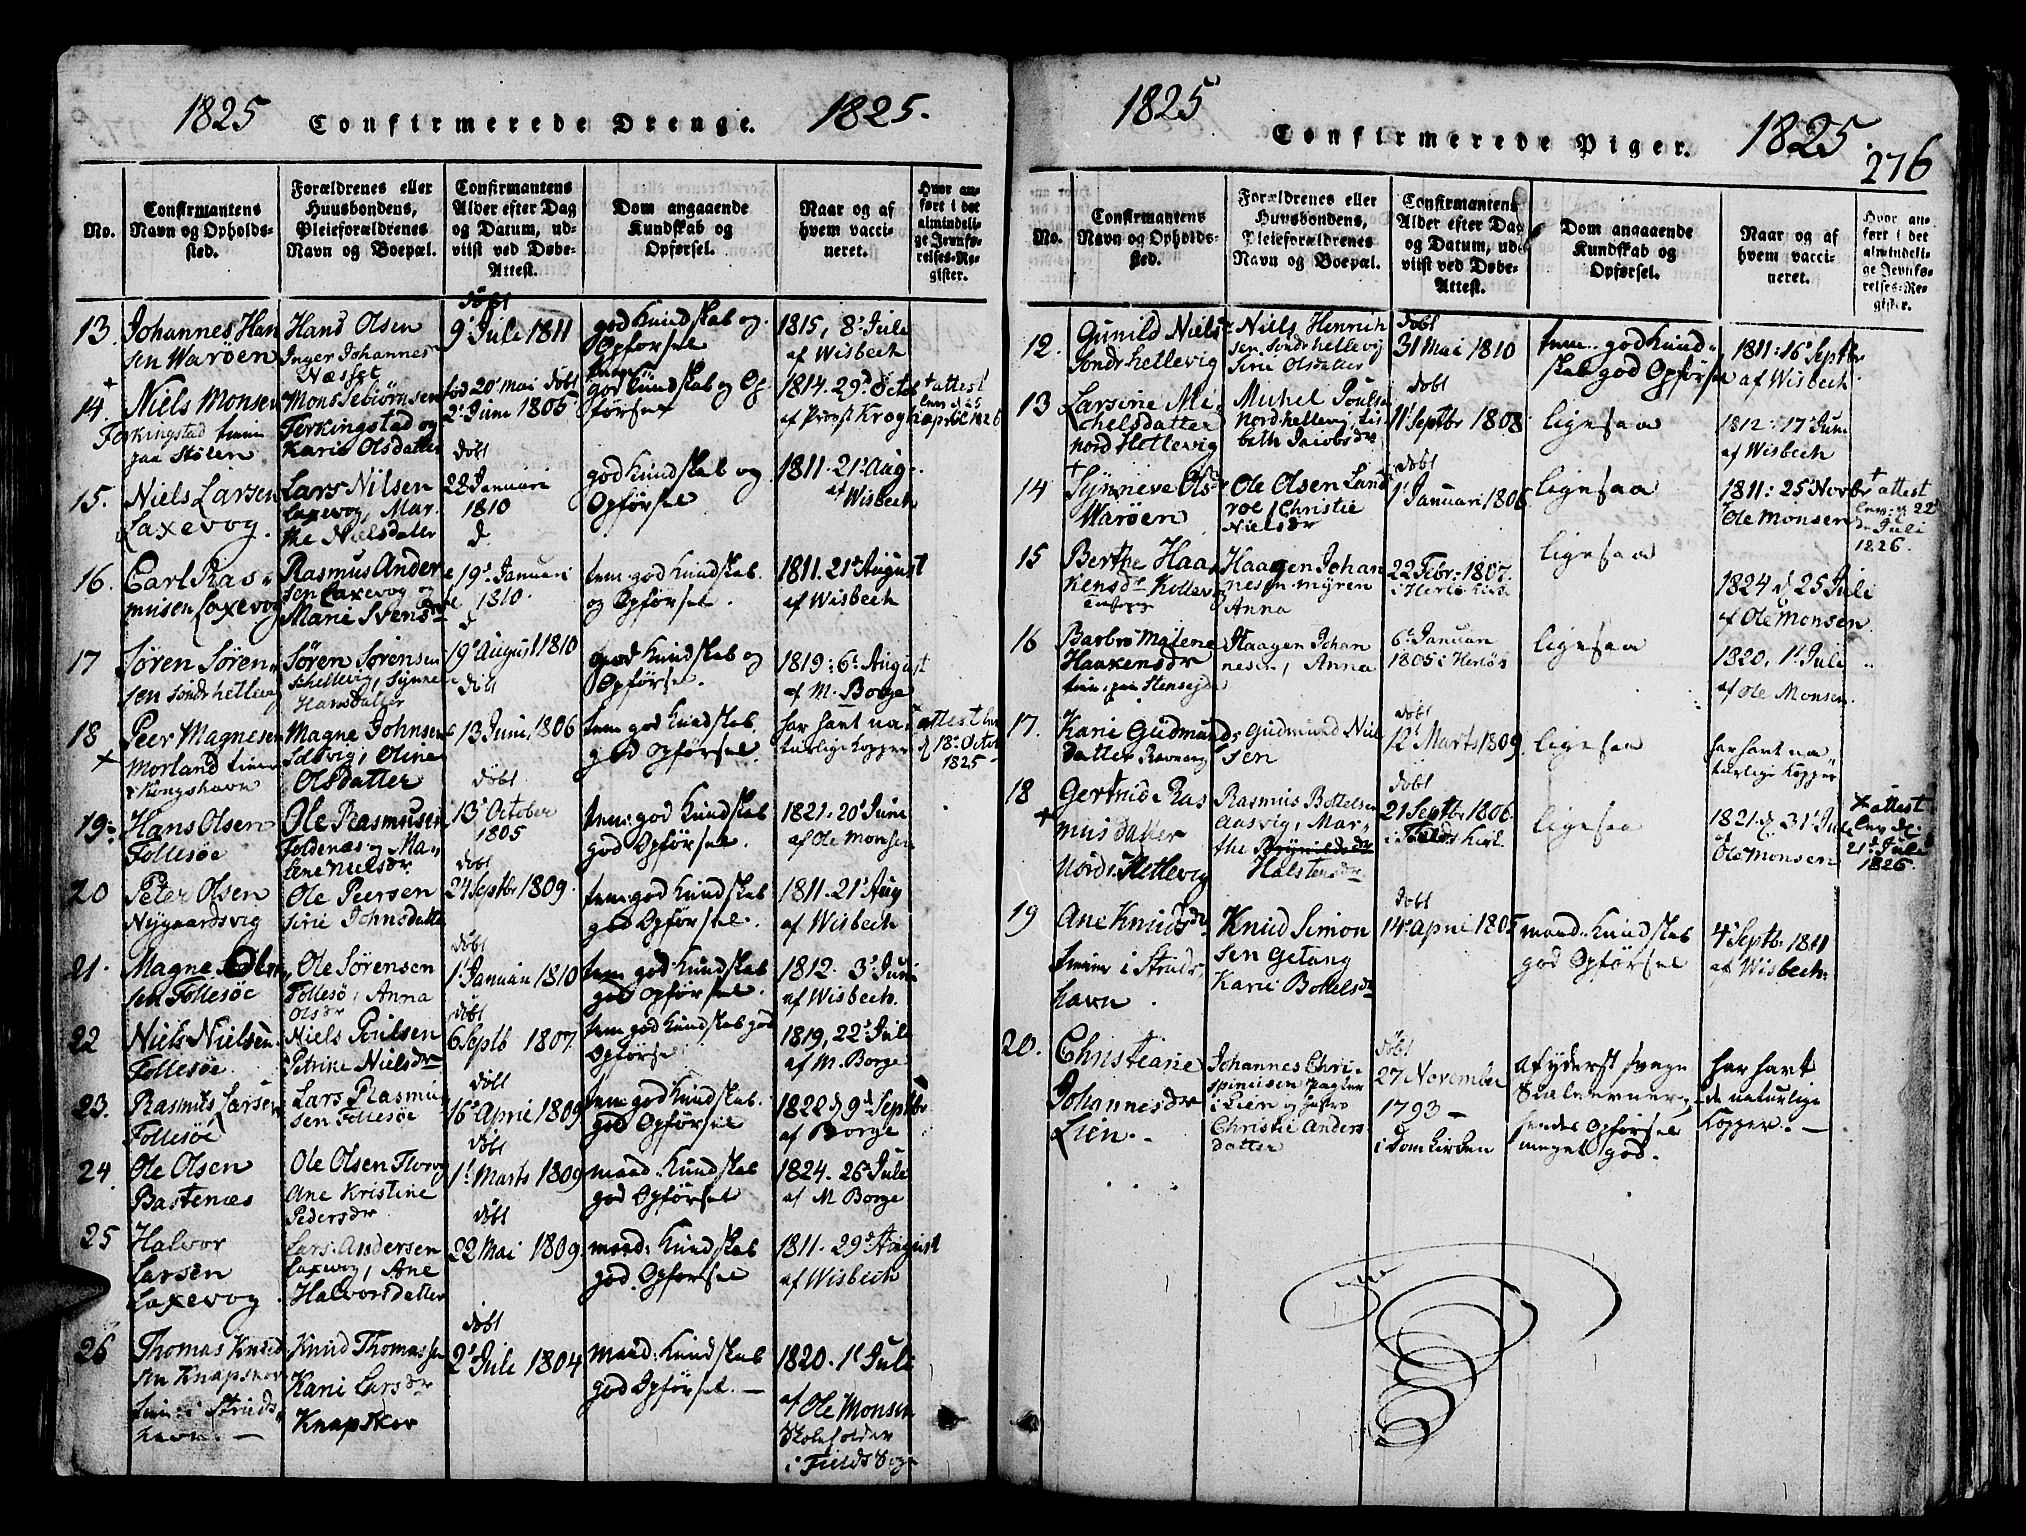 1825 Confirmerede Drenge. 1825.
No.
Confirmantens
Navn og Opholds-
sted.
Forældrenes eller
Huusbondens,
Pleieforældrenes
Navn og Boepæl.
Confirmantens
Alder efter Dag
og Datum, ud-
viist ved Døbe-
Attest.
Dom angaaende
Kundskab og
Opførsel.
Naar og af
hvem vacci-
neret.
Hvor an-
ført i det
almindeli-
ge Jevnfø-
relses-Re-
gister.
13.
Johannes Han
sen Warøen
Hans Olsen
Inger Johannes
Næsset
døbt
9' Jule 1811
god Kundskab og
Opførsel
1815, 8' Jule
af Wisbech
+
14.
Niels Monsen
Ferkingstad
paa Stølen
Mons
Ferkingstad og
Kari Olsdatter
fød 20' mai døbt
2' Juni 1806
god Kundskab og Op
førsel
1814. 29' Octob
af Provst Krog
+ attest
lev. d. 25
april 1826
15.
Niels Larsen
Laxevog.
Lars Nilsen
Laxevog, Mar
the Nielsdatter
døbt
28 Januari
1810
god Kundskab og
Opførsel
1811. 21' Aug
af Wisbech
16.
Carl Ras-
musen Laxevog
Rasmus Ander
sen Laxevog og
Marie Svensdr
d.
19' Januari
1810.
tem: god Kundskab.
og Opførsel.
1811. 21' August
af Wisbech
17
Søren Søren-
sen Søndrhetlevig
Søren Sørensen
Schellevig, Synne
Hansdatter
d
19' August 1810
god Kundskab og
Opførsel.
1819: 6' August
af M. Borge
18
+
Peer Magnesen
Morland
Kongshavn
Magne Johnsen
Oline
Olsdatter
døbt
13 Juni, 1806
tem god Kundskab
god Opførsel.
har havt na
turlige Kopper
attest lev
d 18' Octo
1825 -
19:
Hans Olsen
Follesøe
Ole Rasmusen
Foldenæs og Ma
lene Nielsdr.
døbt
13' October
1805
tem: god Kundskab
god Opførsel.
1821. 20' Juni
af Ole Monsen
20
Peter Olsen
Nygaardsvig
Ole Peersen
Sirie Johnsdatter
døbt
24 Septbr 1809.
tem: god Kundskab
god Opførsel.
1811. 21' Aug
af Wisbech
21.
Magne Ols
sen Follesøe
Ole Sørensen
Follesø, Anna
Olsdr
døbt
1' Januari 1810
tem god Kundskab
god Opførsel.
1812. 3' Juni
af Wisbech.
22
Niels Nielsen
Follesøe.
Niels Poulsen
Petrine Nielsdr
døbt
6 Septb 1807.
tem god Kundskab god
Opførsel
1819, 22' Jule
af M. Borge
23.
Rasmus Larsen
Follesøe
Lars Rasmus
sen Follesøe
døbt
16' April 1809
tem: god Kundskab.
god Opførsel
1822 d 9' Septbr
af Borge
24.
Ole Olsen
Bastenæs
Ole Olsen
Ane Kristine
Pedersdr
døbt
1' Marts 1809
maad: Kundskab
god Opførsel
1824. 26' Jule
af M Borge
25
Halvor
Larsen
Laxevog
Lars Andersen
Laxevog, Ane
Halvorsdatter
døbt
22 Mai 1809.
maad: Kundskab
god Opførsel
1811. 29' August
af Wisbech
26
Thomas Knud
sen Knapskor
i Struds
havn. -
Knud Thomassen
Kari Larsdr
Knapskor
døbt
2' Jule 1804
maad: Kundskab
god Opførsel. -
1820. 1' Juli
af Ole Monsen
Skoleholder
i Fields Sogn
1825 Confirmerede Piger. 1825.
276
No.
Confirmantens
Navn og Opholds-
sted.
Forældrenes eller
Huusbondens,
Pleieforældrenes
Navn og Boepæl.
Confirmantens
Alder efter Dag
og Datum, ud-
viist ved Døbe-
Attest.
Dom angaaende
Kundskab og
Opførsel.
Naar og af
hvem vacci-
neret.
Hvor an-
ført i det
almindeli-
ge Jevnfø-
relses-Re-
gister.
12.
Gunild Niels
Søndrhetlevig
Niels Henrich
sen Søndrhetlevig
Sirie Olsdatter
døbt
31 Mai 1810
tem. god Kund-
skab god Opførsel
1811: 16' Septbr
af Wisbech.
13
Larsine Mi
chelsdatter
Nord Hetlevig
Michel Poulsen
Nordhetlevig, Lis
beth Jacobsdr
døbt
11' Septbr 1808
ligesaa
1812: 17' Juni
af Wisbech
+
14
Synneve Olsdr
Warøen
Ole Olsen Land
roe, Christie
Nielsdr
døbt
1' Januari 1806
ligesaa
1811: 25' Novbr
Ole Monsen
+ attest
lev. d 22
Juli
1826.
15
Berthe Haa
kensdr
Haagen Johan
nesen myren
Anna
22 Febr: 1807.
i Herlø Kirk
ligesaa
1824 d 25 Juli
af Ole Monsen.
16
Barbro Malene
Haakensdr
Haagen Johan
nesen, Anna
6' Januari
1805 i Herlø
ligesaa
1820, 1' Juli
af Ole Monsen.
17.
Karie Gudmunds
datter Ravnang
Gudmund Niel
sen
døbt
12' Marts 1809.
ligesaa
har havt na
turlige Kopper
18
+
Gertrud Ras
mus datter
Nordr Hetlevig
Rasmus Bottelsen
Aasvig, Mar
the
Halstensdr
døbt
21 Septbr 1806.
i Fields Kirk
ligesaa
1821. d. 31' Jule
af
Ole Monsen
+ attest
lev d.
21' Juli
1826.
19
Ane Knudsdr
i Struds
havn.
Knud Simon
sen Getang
Karie Bottelsdr
døbt
14' april 1805
maad: Kundskab
god Opførsel
4' Septbr 1811
af Wisbech.
20.
Christiane
Johannesdr
Lien.
Johannes Chri-
spinusen
i Lien og hustro
Christie Anders
datter
døbt
27 November
1793 -
i Domkirken
af yderst svage
Sialeevner;
hendes Opførsel
meget god.
har havt
de naturlige
Kopper. -